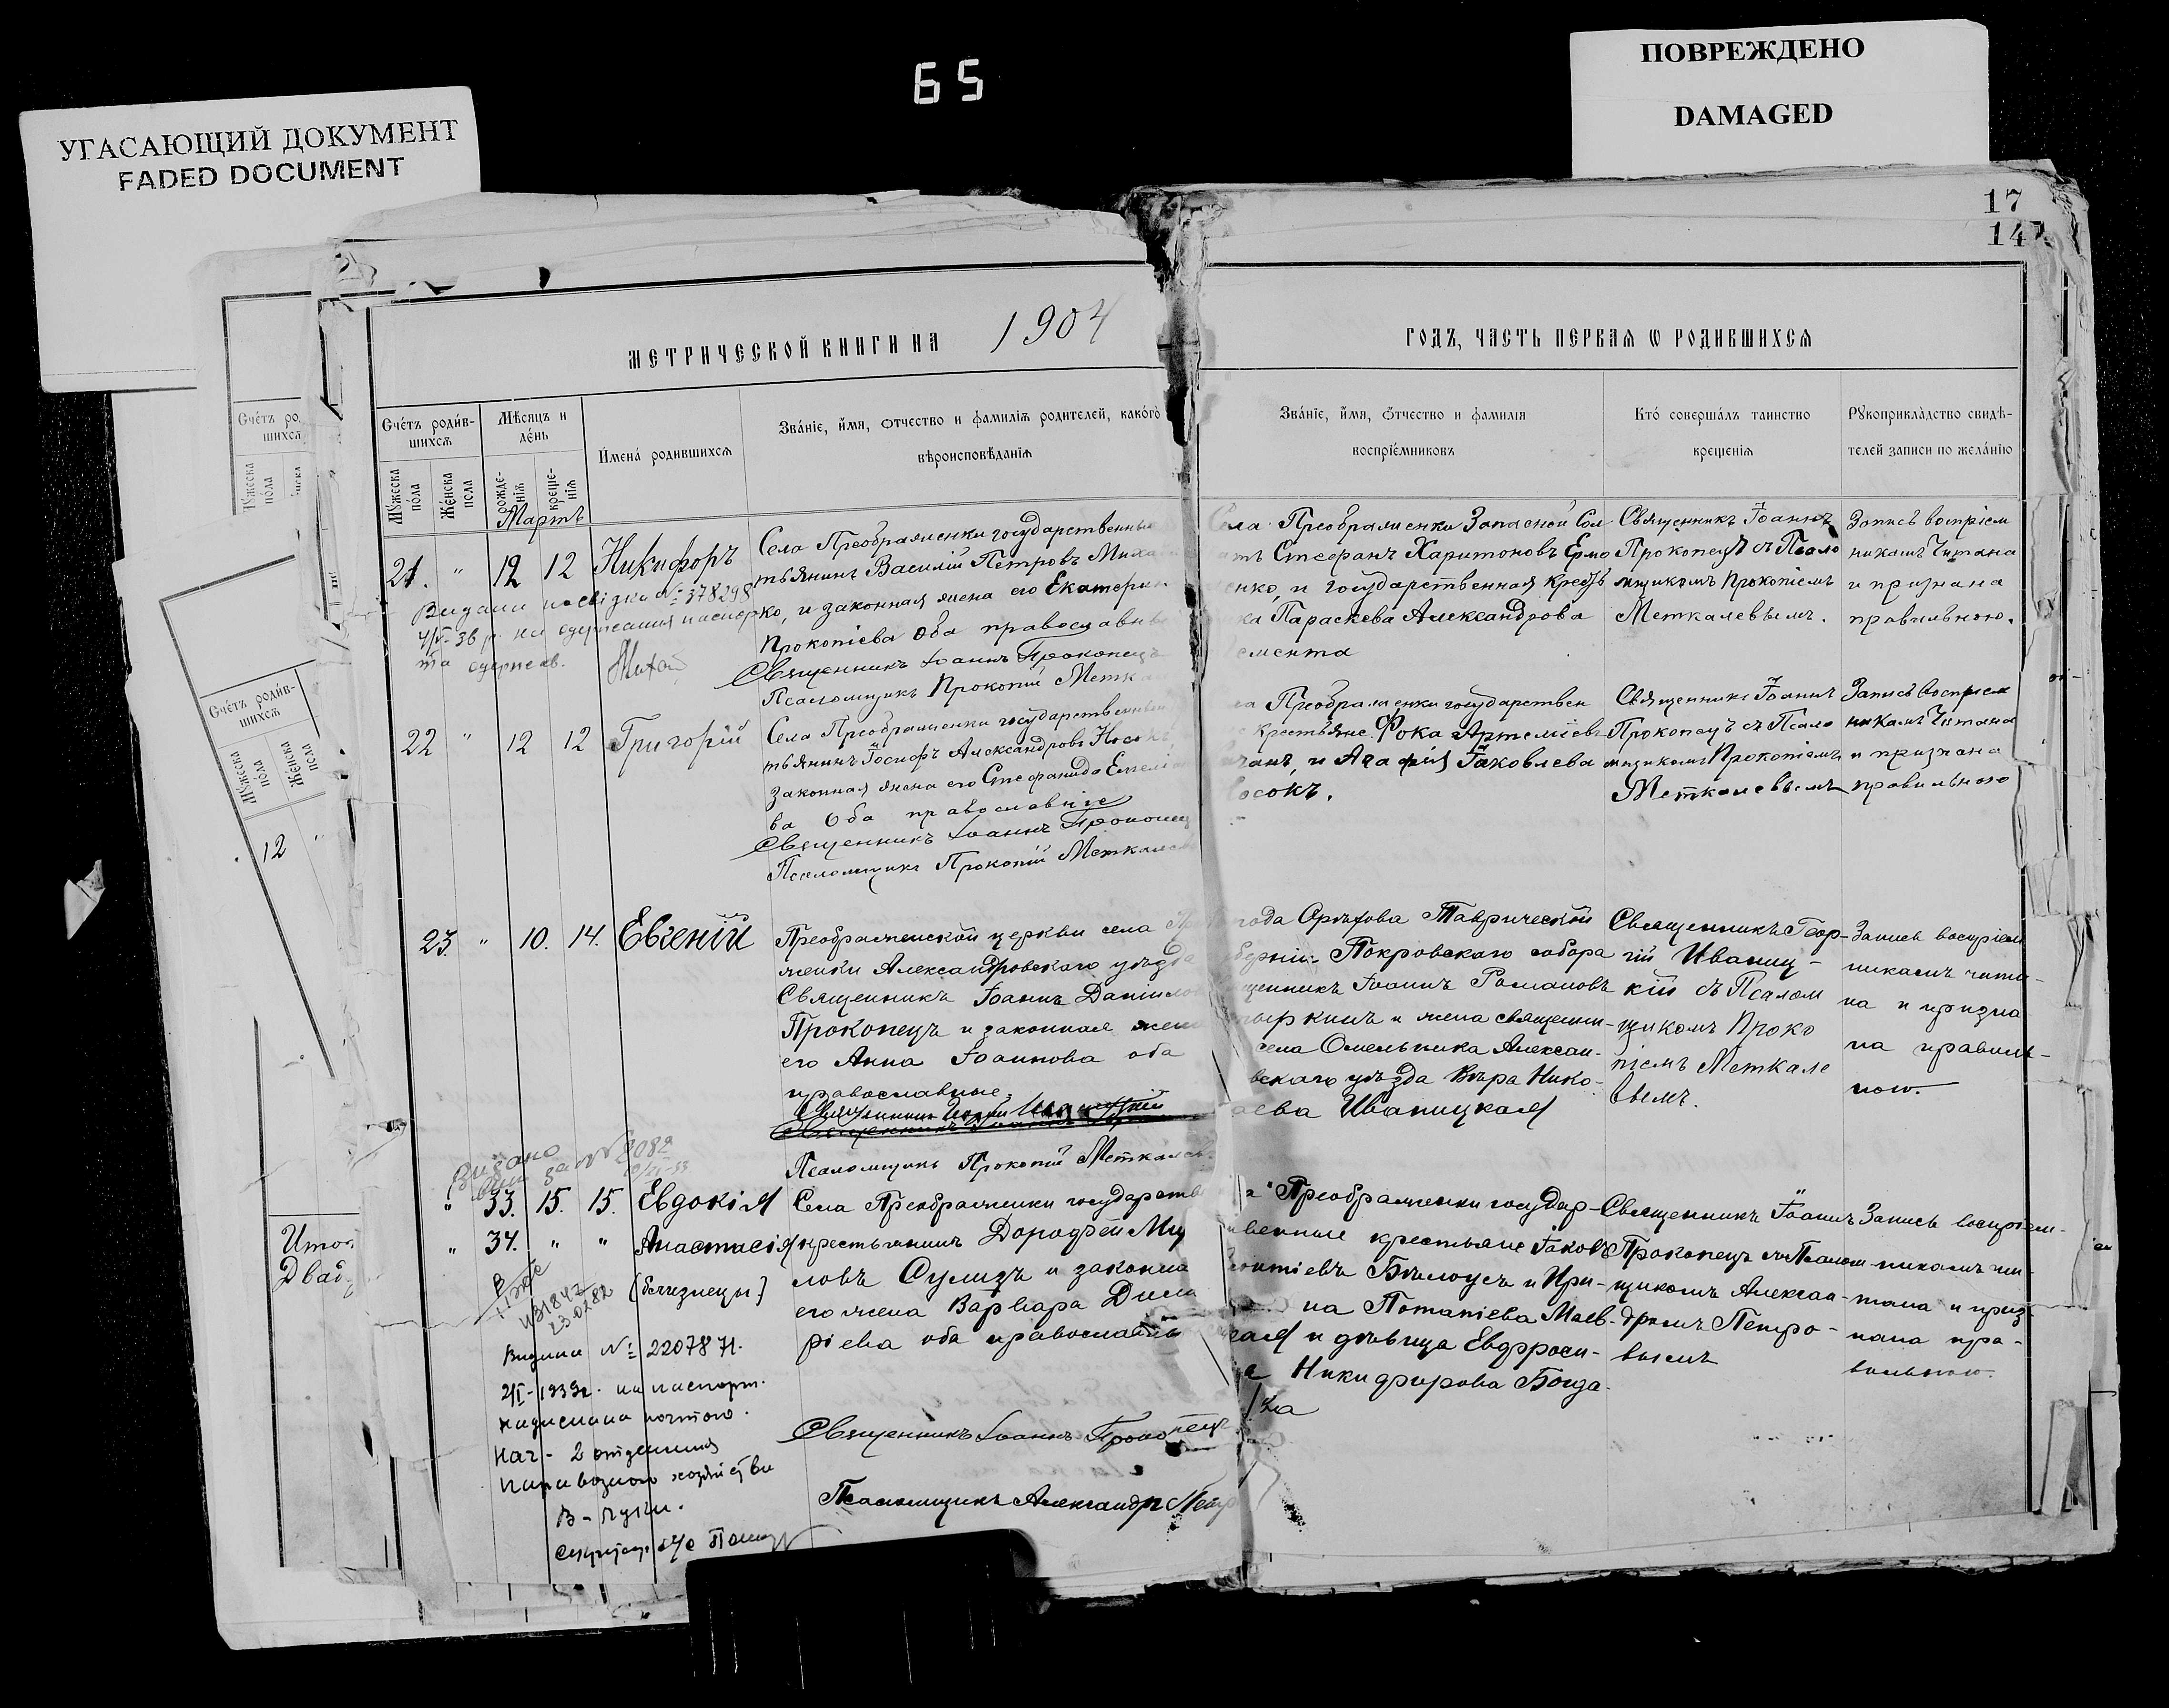 65
ПОВРЕЖДЕНО
DAMAGED
УГАСАЮЩИЙ ДОКУМЕНТ
FADED DOCUMENT
17
147
МЕТРИЧЕСКОЙ КНИГИ НА 1904
ГОДЪ, ЧАСТЬ ПЕРВАЯ Ѡ РОДИВШИХСЯ
Счетъ родив-
шихся
Мужеска пола
Женска пола
Мѣсяцъ и
день
рожде-
нія
креще-
нія
Имена родившихся
Званіе, имя, отчество и фамилія родителей, какого
вѣроисповѣданія
Званіе, имя, ѿчество и фамилія
воспріемниковъ
Кто совершалъ таинство
крещенія
Рукоприкладство свидѣ-
телей записи по желанію
Мартъ
21. " 12 12 Никифоръ
Села Преображенки государственны
тьянинъ Василій Петровъ Миха
ко, и законная жена его Екатерин
Прокопіева Оба православны
Священникъ Іоаннъ Прокопецъ
Псаломщикъ Прокопій Метка
Села Преображенки Запасной Сол
атъ Стефанъ Харитоновъ Ермо
енко, и государственная Кресть
ка Параскева Александрова
Священникъ Іоаннъ
Прокопецъ съ Псало
мщикомъ Прокопіемъ
Меткалевымъ.
Запись воспріем
никамъ Читана
и признана
правильною.
Видана посвідка № 378298
22 " 12 12 Григорій
Села Преображенки государственный
тьянинъ Іосифъ Александровъ Носок
законная жена его Стефанида
ва Оба православніе
Священникъ Іоаннъ Прокопец
Псаломщикъ Прокопій Меткалев
а Преображенки государствен
Крестьяне Фока Артеміев
и Агафія Іаковлева
осокъ.
Священникъ Іоаннъ
Прокопецъ съ Псало
мщикомъ Прокопіемъ
Меткалевымъ
Запись воспріем
никамъ Читана
и признана
правильною
23. " 10. 14. Евгеній
Преображенской церкви села Пр
женки Александровскаго уѣзда
Священникъ Іоаннъ Даніилов
Прокопецъ и законная жена
его Анна Іоаннова оба
православные.
Псаломщикъ Прокопій Меткалев
рода Орѣхова Таврической
берніи Покровскаго собора
щенникъ Іоаннъ Романовъ
ыркинъ и жена священни-
села Омельника Алексан-
вскаго уѣзда Вѣра Нико-
аева Иваницкая
Священникъ Геор-
гій Иваниц-
кій съ Псалом
щикомъ Проко
піемъ Меткале
вымъ.
Запись воспріем
никамъ чита-
на и призна
на правиль-
ною.
Видано
" 33. 15. 15. Евдокія
" 34. " " Анастасія
(близнецы)
Села Преображенки государств
крестьянинъ Дорофей Ми
ловъ Сулизъ и законна
его жена Варвара Дими
ріева оба православны
Священникъ Іоаннъ Прокопецъ
Псаломщикъ Александръ Петр
а Преображенки государ-
твенные крестьяне Іаковъ
Бѣлоусъ и Ири-
на Потапіева Маев-
ская и дѣвица Евфроси-
Никифорова Богда-
Священникъ Іоаннъ
Прокопецъ съ Псалом-
щикомъ Алексан-
дромъ Петро-
вымъ
Запись воспріем-
никамъ чи-
тана и приз-
нана пра-
вильною.
Видана № 220787
2/I-1933г. на паспорт.
Нач- 2 отделения
Счетъ родив-
шихся
Мужеска пола
Женска пола
12 "
Итог
Двад